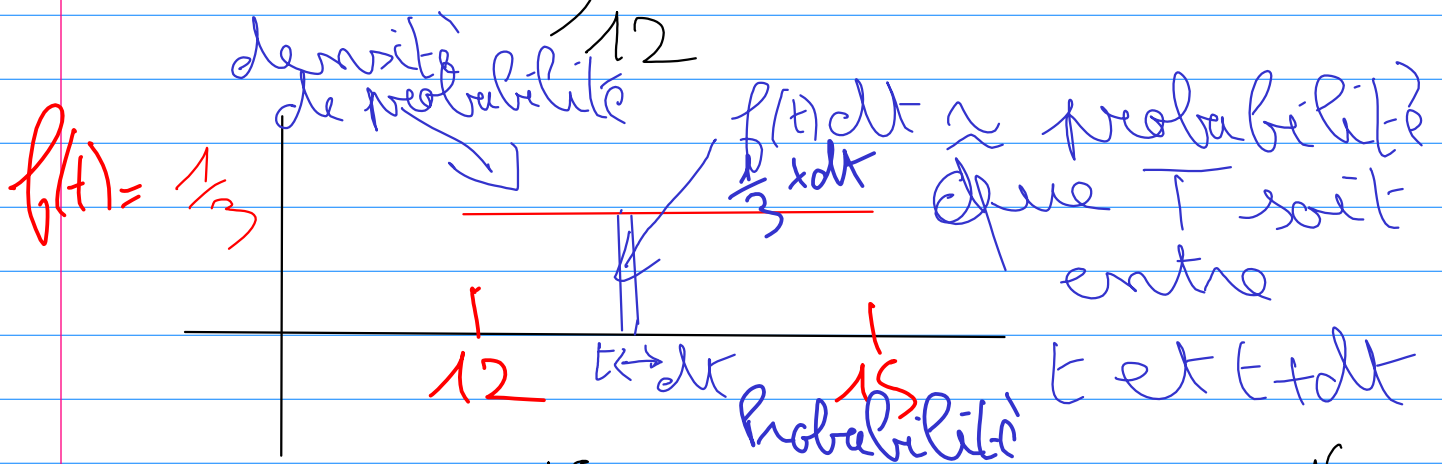 12
densité
de probabilité
f(t) = 1/3
f(t)dt ≈ probabilité
1/3 x dt
que T soit
entre
t et t+dt
12
t ↔ dt
15
Probabilité